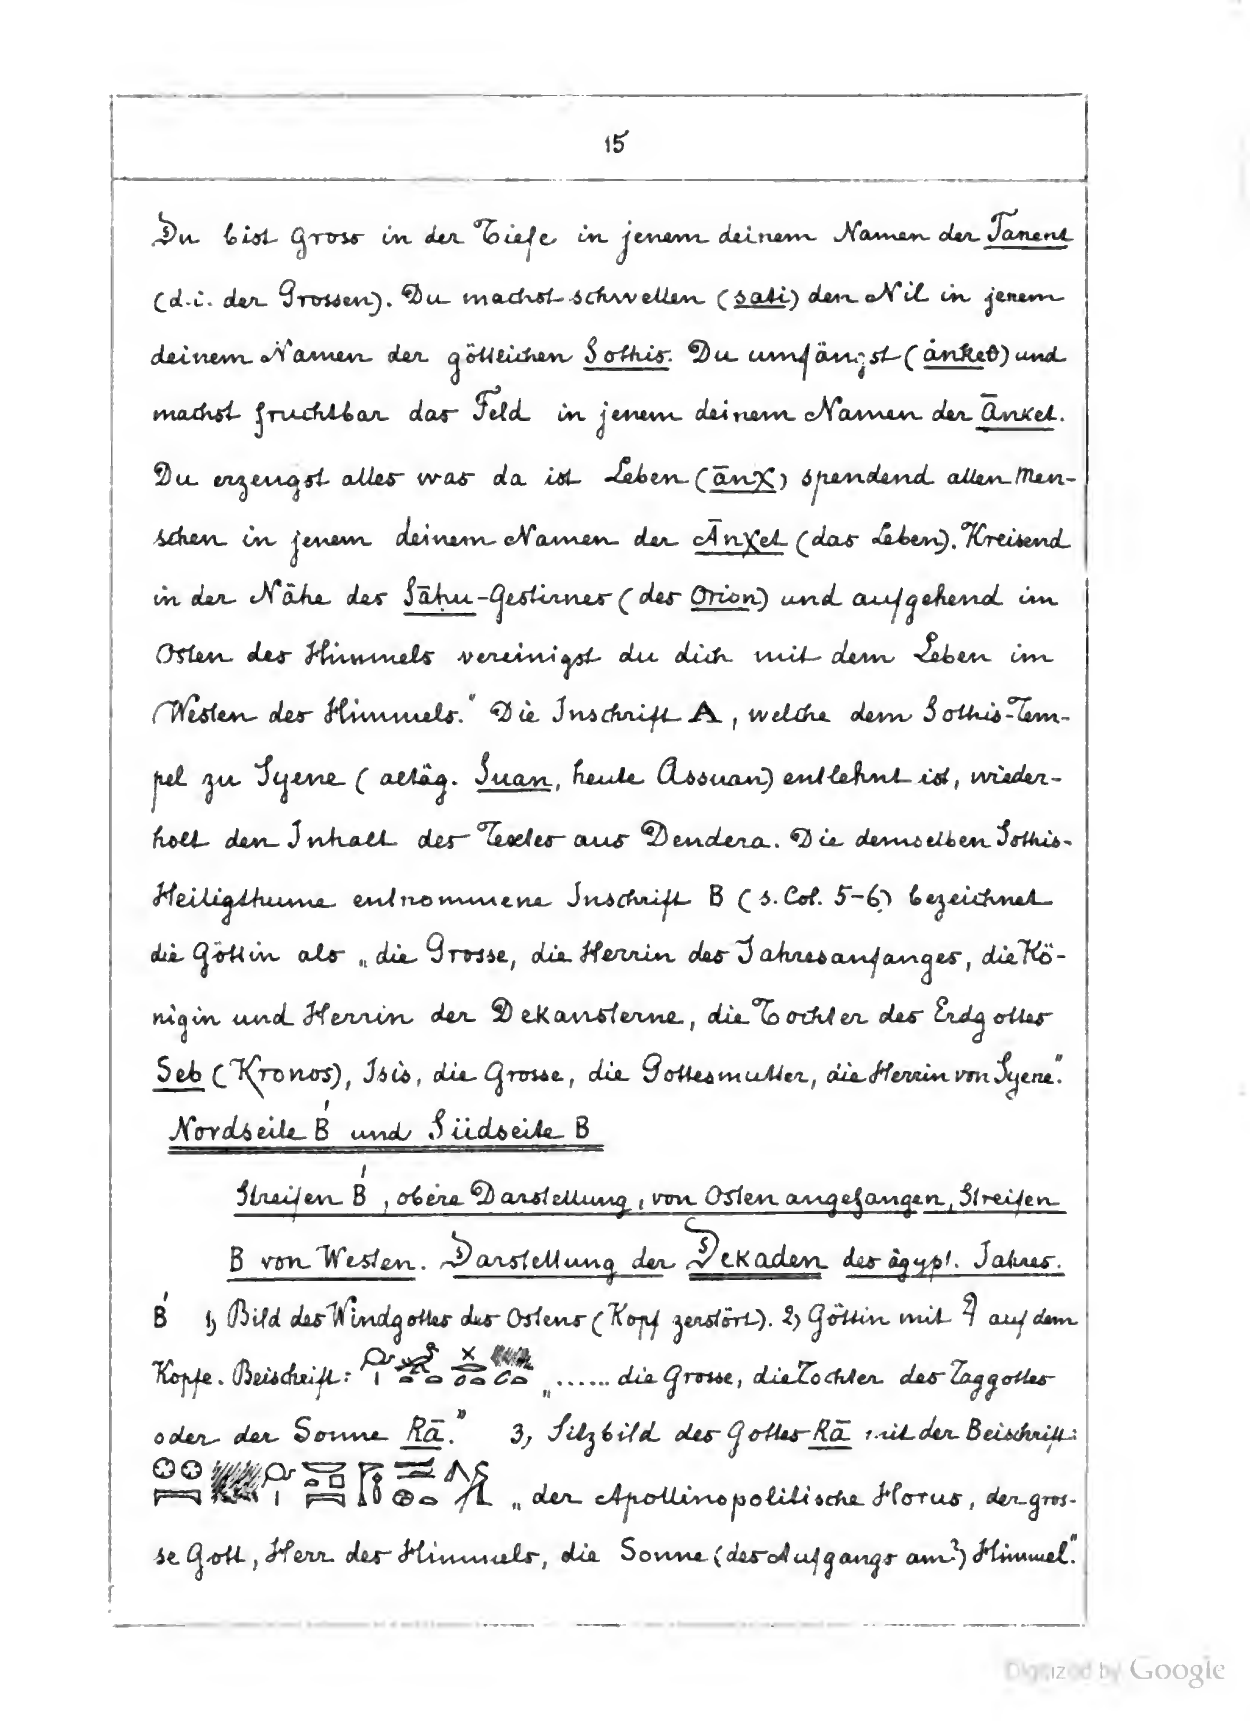 15
Du bist gross in der Tiefe in jenem deinem Namen der Tanent
(d.i. der Grossen). Du machst schwellen (sati) den Nil in jenem
deinem Namen der göttlichen Sothis. Du umfängst (ānkeθ) und
machst fruchtbar das Feld in jenem deinem Namen der Ānket.
Du erzeugst alles was da ist Leben (ānχ) spendend allen Men-
schen in jenem deinem Namen der Ānχet (das Leben). Kreisend
in der Nähe des Sāḥu-Gestirnes (des Orion) und aufgehend im
Osten des Himmels vereinigst du dich mit dem Leben im
Westen des Himmels." Die Inschrift A, welche dem Sothis-Tem-
pel zu Syene (altäg. Suan, heute Assuan) entlehnt ist, wieder-
holt den Inhalt des Textes aus Dendera. Die demselben Sothis-
Heiligthume entnommene Inschrift B (s. Col. 5-6) bezeichnet
die Göttin als „die Grosse, die Herrin des Jahresanfanges, die Kö-
nigin und Herrin der Dekansterne, die Tochter des Erdgottes
Seb (Kronos), Isis, die Grosse, die Gottesmutter, die Herrin von Syene".
Nordseite B' und Südseite B
Streifen B', obere Darstellung, von Osten angefangen, Streifen
B von Westen. Darstellung der Dekaden des ägypt. Jahres.
B' 1) Bild des Windgottes des Ostens (Kopf zerstört). 2) Göttin mit auf dem
Kopfe. Beischrift: „...... die Grosse, die Tochter des Taggottes
oder der Sonne Rā." 3) Sitzbild des Gottes Rā mit der Beischrift:
„der Apollinopolitische Horus, der gros-
se Gott, Herr des Himmels, die Sonne (des Aufgangs am?) Himmel".
Digitized by Google